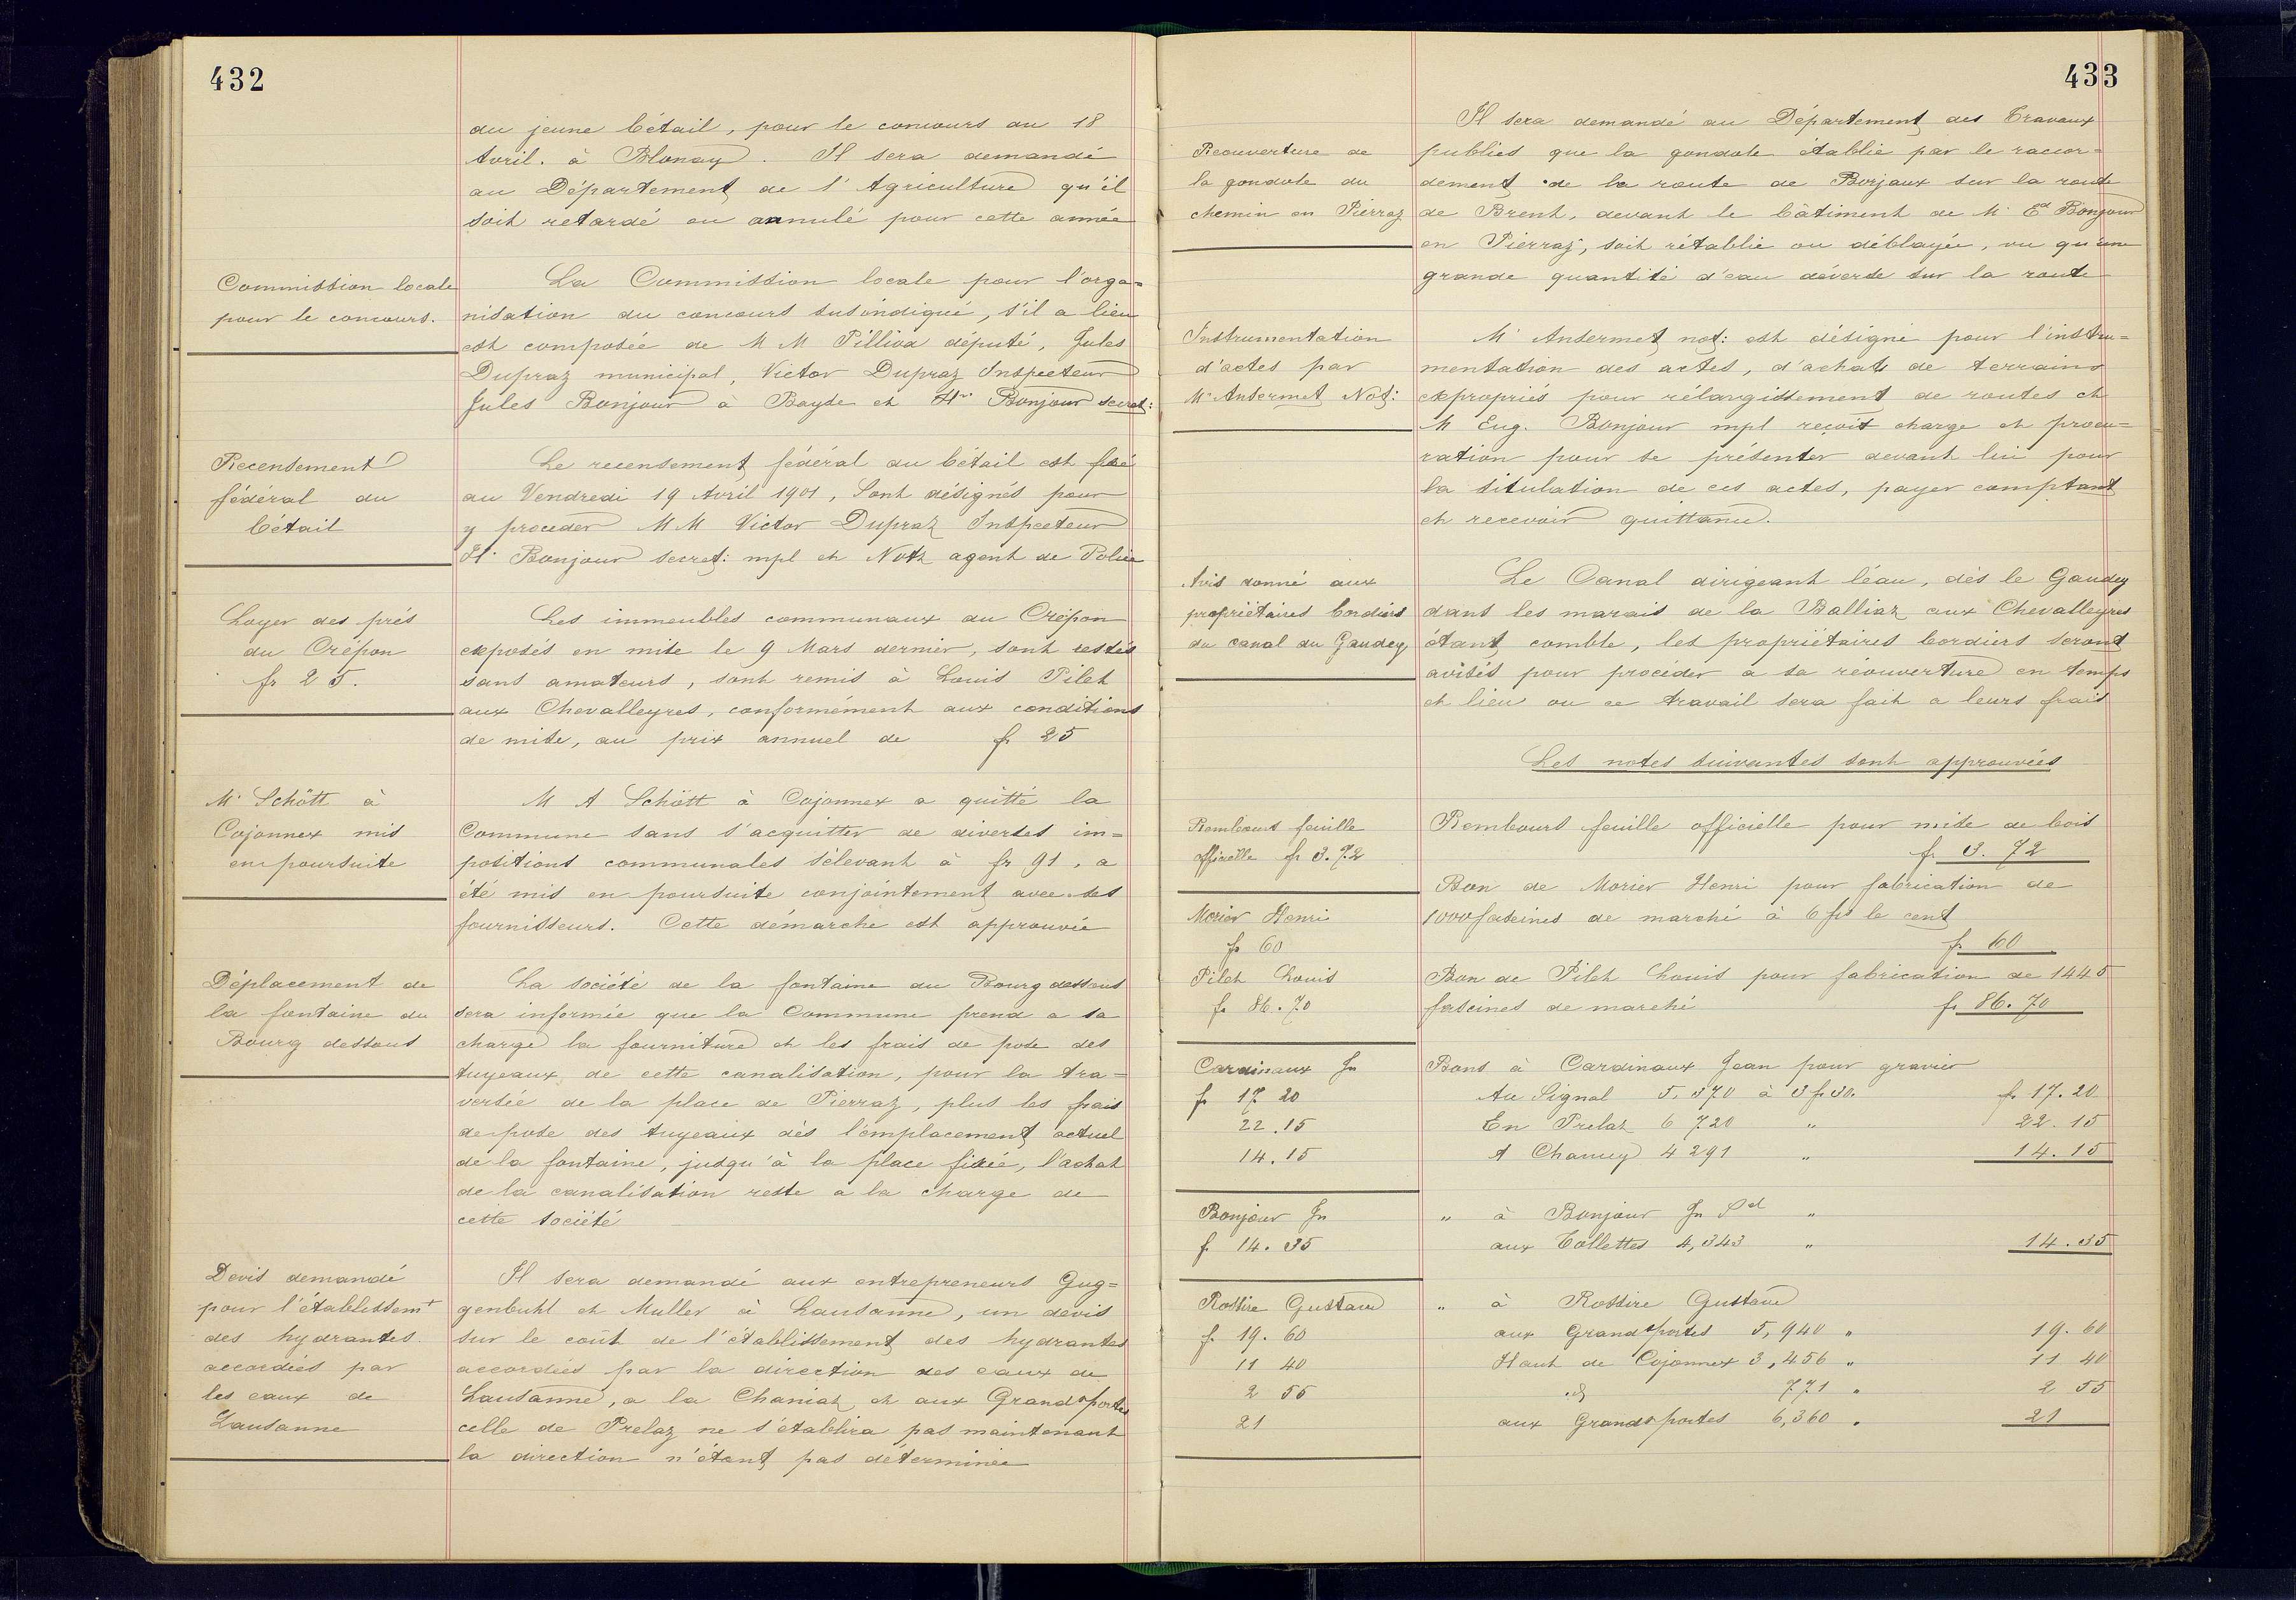 432
du jeune bétail, pour le concours au 18
Avril. à Blonay. Il sera demandé
au Département de l'Agriculture qu'il
soit retardé ou annulé pour cette année
Commission locale
pour le concours.
La Commission locale pour l'orga=
nisation du concours susindiqué, s'il a lieu
est composée de M M Pilliod député, Jules
Dupraz municipal, Victor Dupraz Inspecteur
Jules Bonjour à Bayde et Hri Bonjour secret:
Recensement
fédéral du
bétail
Le recensement fédéral du bétail est fixé
au Vendredi 19 Avril 1901, Sont désignés pour
y proceder M M Victor Dupraz Inspecteur
H. Bonjour secret: mpl et Noth agent de Police
Loyer des prés
du Crépon
fr 25.
Les immeubles communaux du Crépon
exposés en mise le 9 Mars dernier, sont restés
sans amateurs, sont remis à Louis Pilet
aux Chevalleyres, conformément aux conditions
de mise, au prix annuel de fr 25
Mr Schött à
Cojonnex mis
en poursuite
M A Schött à Cojonnex a quitté la
Commune sans s'acquitter de diverses im=
positions communales s'élevant à fr 91, a
été mis en poursuite conjointement avec des
fournisseurs. Cette démarche est approuvée
Déplacement de
la fontaine du
Bourg dessous
La société de la fontaine du Bourg dessous
sera informée que la Commune prend a sa
charge la fourniture et les frais de pose des
tuyeaux de cette canalisation, pour la tra=
versée de la place de Pierraz, plus les frais
de pose des tuyeaux dès l'emplacement actuel
de la fontaine, jusqu'à la place fixée, l'achat
de la canalisation reste a la charge de
cette société
Devis demandé
pour l'établissemt
des hydrantes
accordées par
les eaux de
Lausanne
Il sera demandé aux entrepreneurs Gug=
genbuhl et Muller à Lausanne, un devis
sur le coût de l'établissement des hydrantes
accordées par la direction des eaux de
Lausanne, a la Chaniaz et aux Grands portes
celle de Prelaz ne s'établira pas maintenant
la direction n'étant pas déterminée
433
Reouverture de
la gondole du
chemin en Pierraz
Il sera demandé au Département des Travaux
publics que la gondole établie par le raccor=
dement de la route de Borjaux sur la route
de Brent, devant le bâtiment de Mr Ed Bonjour
en Pierraz, soit rétablie ou déblayée, vu qu'une
grande quantité d'eau déverse sur la route
Instrumentation
d'actes par
Mr Ansermet Not:
Mr Ansermet not: est désigné pour l'instru=
mentation des actes, d'achats de terrains
expropriés pour rélargissement de routes et
M Eug. Bonjour mpl reçoit charge et procu=
ration pour se présenter devant lui pour
la stipulation de ces actes, payer comptant
et recevoir quittance.
Avis donné aux
propriétaires bordiers
du canal du Gaudey
Le Canal dirigeant l'eau, dès le Gaudey
dans les marais de la Balliaz aux Chevalleyres
étant comble, les propriétaires bordiers seront
avisés pour procéder a sa réouverture en temps
et lieu ou ce travail sera fait a leurs frais
Les notes suivantes sont approuvées
Rembours feuille
officielle fr 3.72
Rembours feuille officielle pour mise de bois
fr 3. 72
Morier Henri
fr 60
Bon de Morier Henri pour fabrication de
1000 fascines de marché à 6 frs le cent
fr 60
Pilet Louis
fr 86.70
Bon de Pilet Louis pour fabrication de 1445
fascines de marché fr 86.70
Cardinaux Jn
fr 17 20
22.15
14.15
Bons à Cardinaux Jean pour gravier
Au Signal 5,370 à 3 fr 30. fr 17.20
En Prelaz 6 720 " 22.15
A Chaucey 4 291 " 14.15
Bonjour Jn
fr 14.35
" à Bonjour Jn "
aux Tollettes 4,343 " 14.35
Rossire Gustave
fr 19.60
11 40
2 55
21
" à Rossire Gustave
aux Grands portes 5,940 " 19.60
Haut de Cojonnex 3,456 " 11 40
id 771 " 2 55
aux Grands portes 6,360 " 21